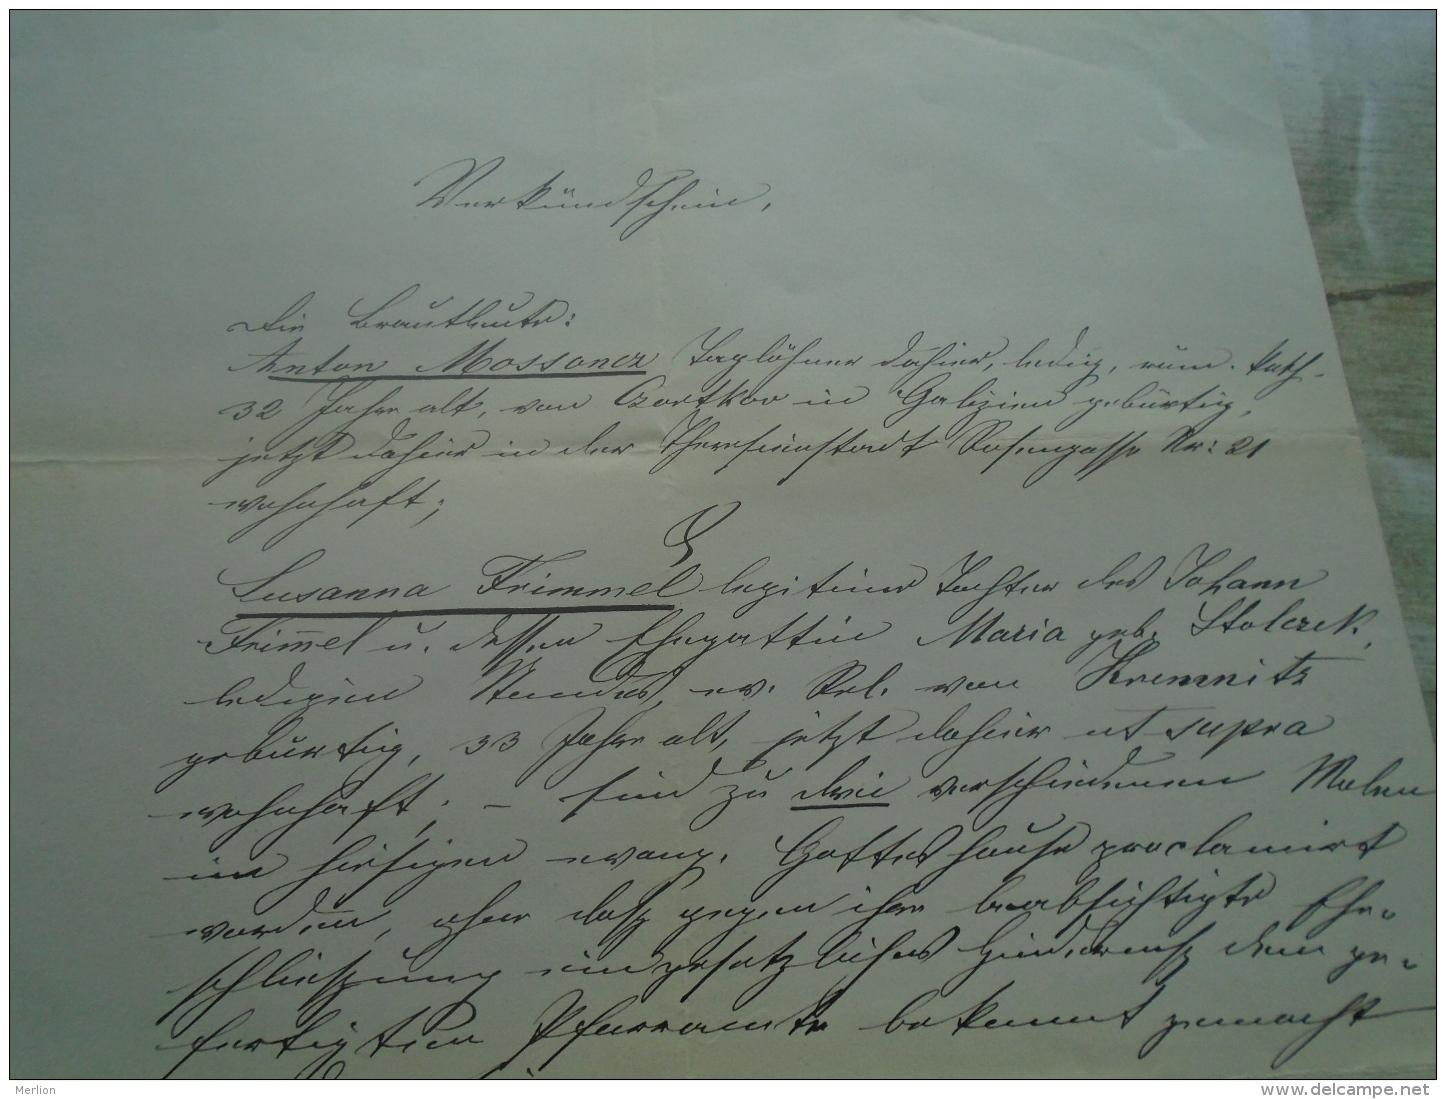 Verkündschein,
Die Brautleute:
Anton Mossoncz Taglöhner dahier, ledig, röm. kath.
32 Jahre alt, von Czortkov in Galizien gebürtig,
jetzt dahier in der Theresienstadt Rosengasse Nr: 21
wohnhaft;
Susanna Frimmel legitime Tochter des Johann
Frim̄el u. dessen Ehegattin Maria geb. Stolczek,
ledigen Standes, ev. Rel. von Kremnitz
gebürtig, 33 Jahre alt, jetzt dahier ut supra
wohnhaft; – sind zu drei verschiedenen Malen
im hiesigen evang. Gotteshause proclamirt
worden, ohne daß gegen ihre beabsichtigte Ehe-
schließung ein gesetzliches Hinderniß dem ge-
fertigten Pfarramte bekannt gemacht
Merlion
www.delcampe.net